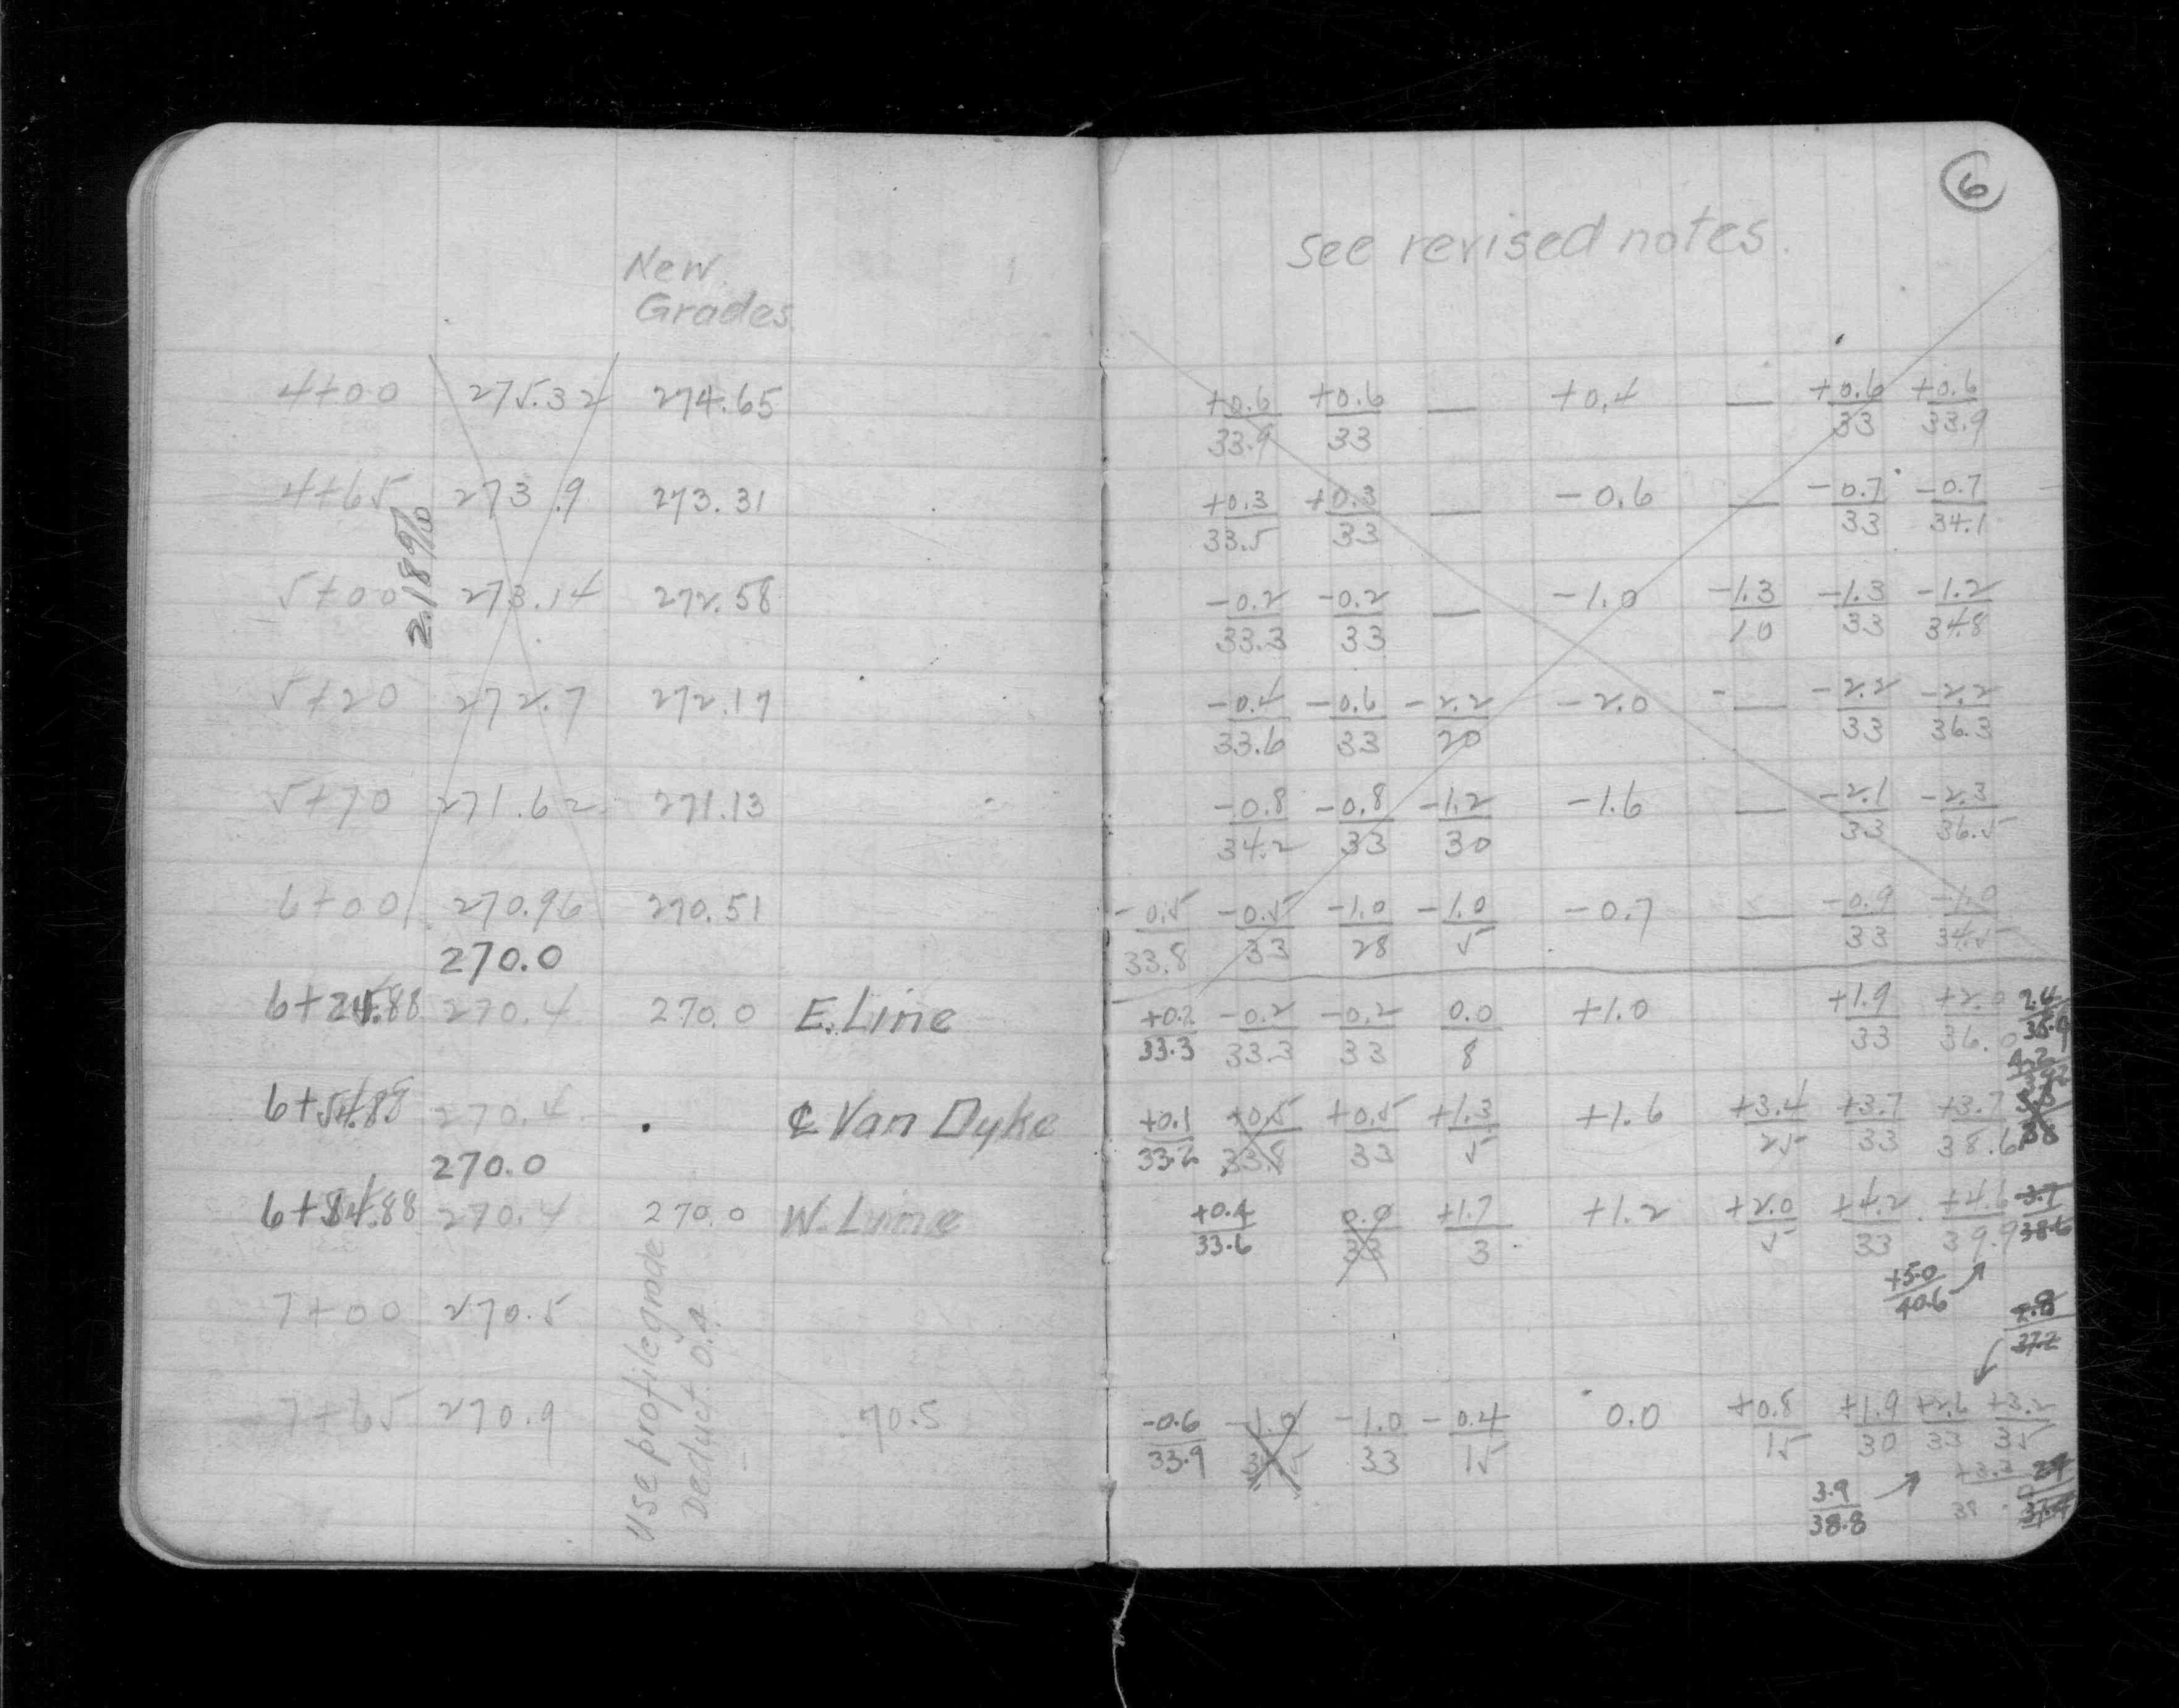 New
Grades
4+00 275.32 274.65
4+65 273.9 273.31
2.18%
5+00 273.14 272.58
5+20 272.7 272.17
5+70 271.62 271.13
6+00 270.96 270.51
270.0
6+24.88 270.4 270.0 E. Line
6+54.88 270.4 ℄ Van Dyke
270.0
6+84.88 270.4 270.0 W. Line
7+00 270.5
7+65 270.9 70.5
Use profile grade
Deduct 0.4
6
See revised notes.
+0.6 +0.6 — +0.4 — +0.6 +0.6
33.9 33 33 33.9
+0.3 +0.3 — -0.6 — -0.7 -0.7
33.5 33 33 34.1
-0.2 -0.2 — -1.0 -1.3 -1.3 -1.2
33.3 33 10 33 34.8
-0.4 -0.6 -2.2 -2.0 — -2.2 -2.2
33.6 33 20 33 36.3
-0.8 -0.8 -1.2 -1.6 — -2.1 -2.3
34.2 33 30 33 36.5
-0.5 -0.5 -1.0 -1.0 -0.7 — -0.9 -1.0
33.8 33 28 5 33 34.5
+0.2 -0.2 -0.2 0.0 +1.0 +1.9 +2.0 2.4
33.3 33.3 33 8 33 36.0
4.2
+0.1 +0.5 +0.5 +1.3 +1.6 +3.4 +3.7 +3.7
33.2 33.8 33 5 25 33 38.6 38
+0.4 0.0 +1.7 +1.2 +2.0 +4.2 +4.6 3.7
33.6 33 3 5 33 39.9 38.6
+5.0
40.6
2.8
37.2
-0.6 -1.0 -1.0 -0.4 0.0 +0.8 +1.9 +2.6 +3.2
33.9 33 15 15 30 33 35
3.9 +3.3 2.9
38.8 38 37.4